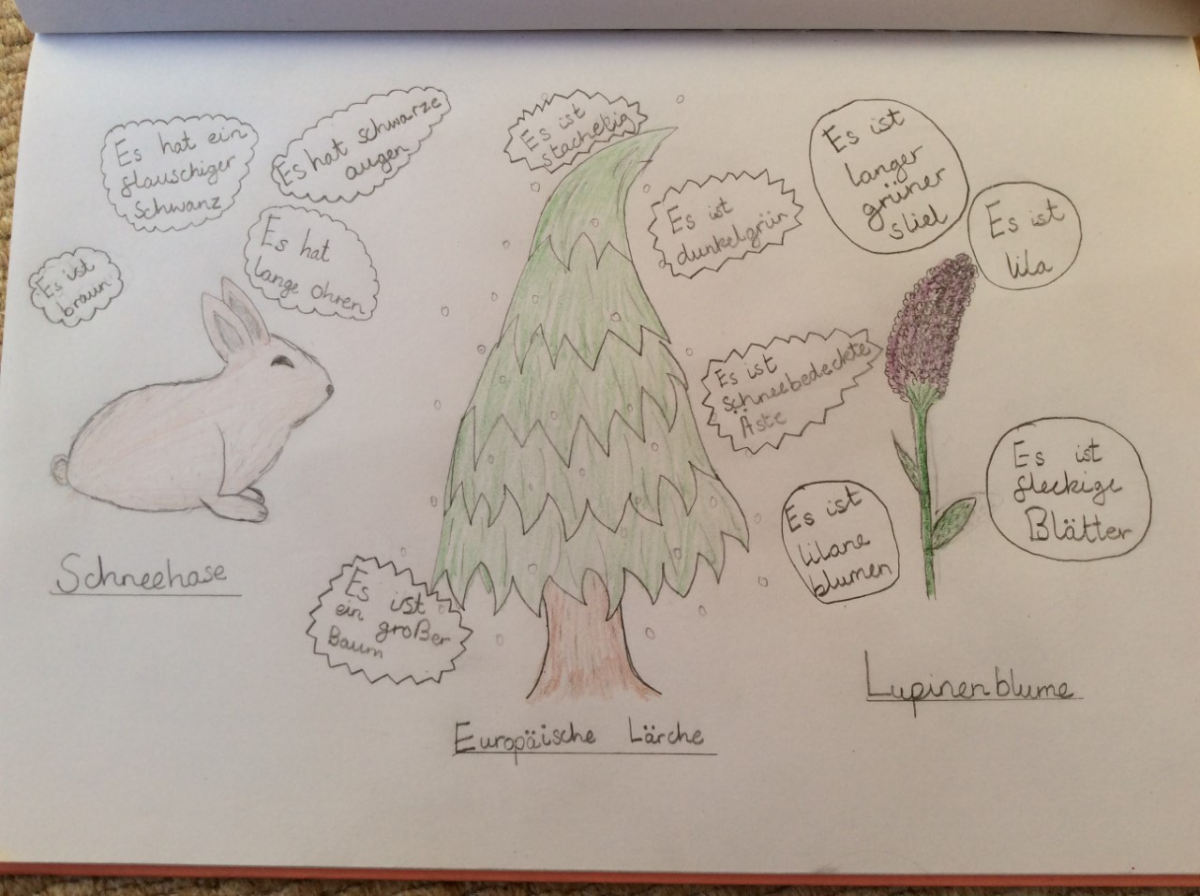 Es hat ein
flauschiger
schwanz
Es hat schwarze
augen
Es hat
lange ohren
Es ist
braun
Schneehase
Es ist
stachelig
Es ist
dunkelgrün
Es ist
schneebedeckte
Äste
Es ist
ein großer
Baum
Europäische Lärche
Es ist
langer
grüner
stiel
Es ist
lila
Es ist
fleckige
Blätter
Es ist
lilane
blumen
Lupinenblume